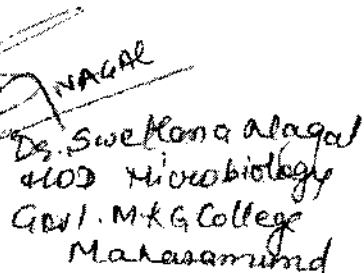 NAGAL
Dr. Swetlana Nagal
HOD Microbiology
Govt. M.K.G College
Mahasamund